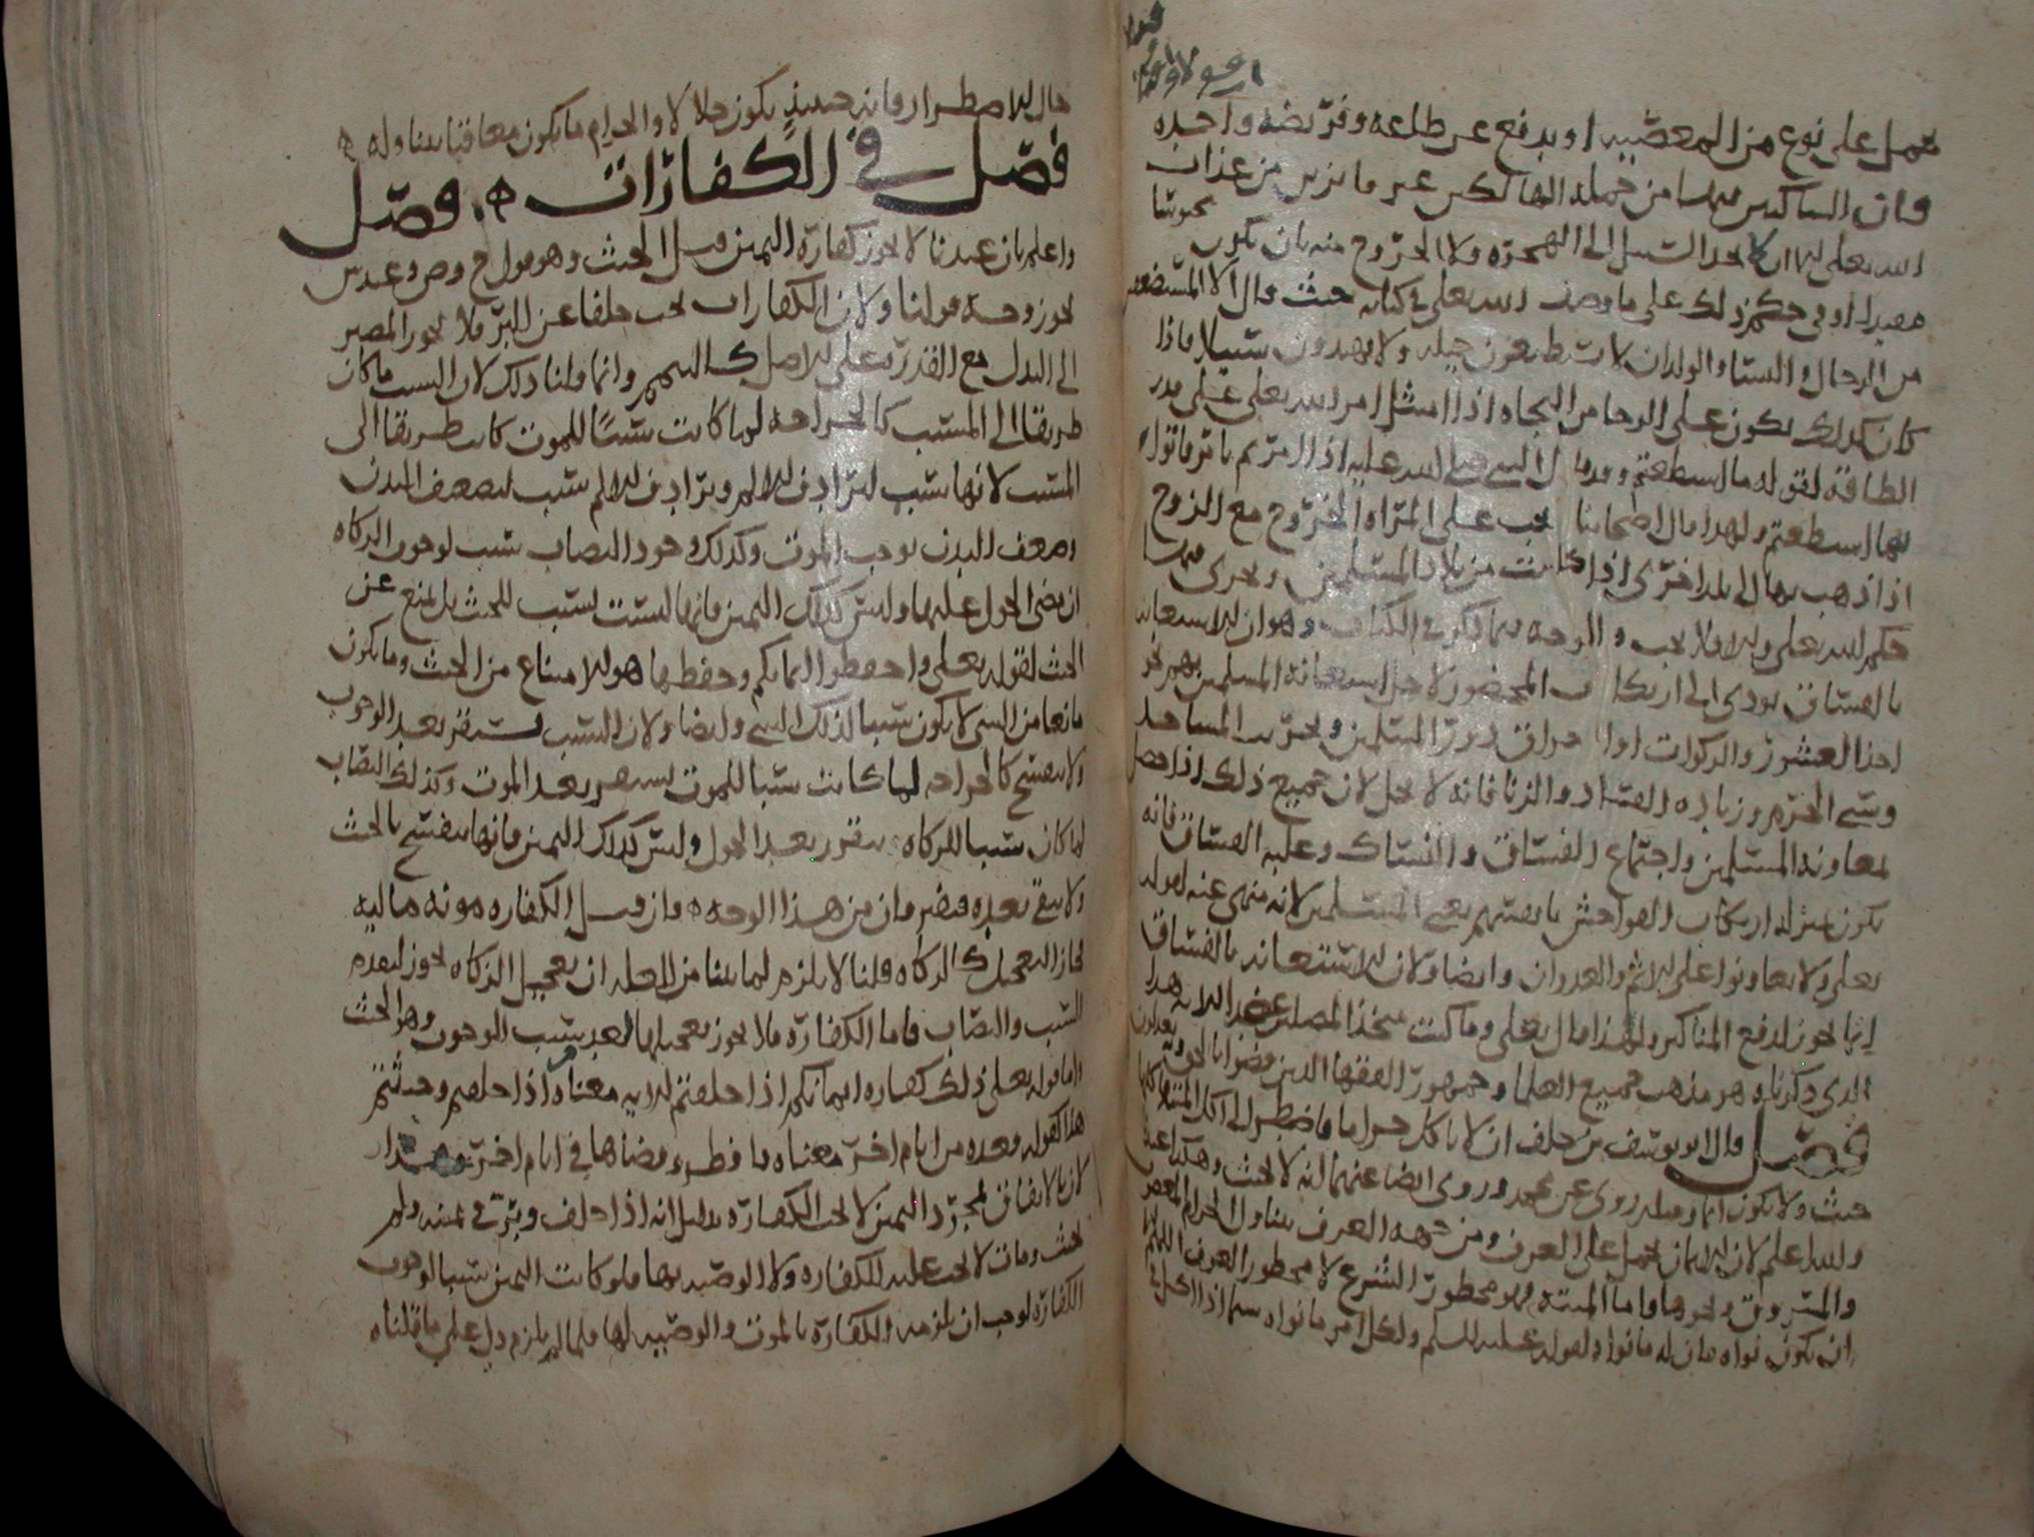 يحمل على نوع من المعصية او يدفع عن طاعة وفريضة واحدة
فان الساكنين فيها من جملة الهالكين غير ناجين من عذاب
الله تعلى الا ان لا يجد السبيل الى الهجرة ولا الخروج منه بان يكون محبوسا
مقيدا او في حكم ذلك على ما وصف الله تعلى في كتابه حيث قال الا المستضعفين
من الرجال والنسا والولدان لا يستطيعون حيلة ولا يهتدون سبيلا فاذا
كان كذلك يكون على الرجا من النجاه اذا امتثل امر الله تعلى على قدر
الطاقة لقوله ما استطعتم وقد قال النبي صلى الله عليه اذا امرتم بامر فاتوا
بها استطعتم ولهذا قال اصحابنا يجب على المراه الخروج مع الزوج
اذا ذهب بها الى بلد اخرى اذا كانت من بلاد المسلمين ويجرى فيها
حكم الله تعلى والا فلا يجب والوجه فيما ذكر في الكتاب وهو ان الاستعانه
بالفساق يودى الى ارتكاب المحضور لاجل استعانة المسلمين بهم نحو
اخذ العشور والزكوات او احراق دور المسلمين وتخريب المساجد
وسبي الحرم وزيادة الفساد والزنا فانه لا يحل لان جميع ذلك اذا حصل
لمعاونة المسلمين واجتماع الفساق والفساك وغلبه الفساق فانه
يكون بمنزلة ارتكاب الفواحش بانفسهم يعني المسلمين لانه منهى عنه لقوله
تعلى ولا تعاونوا على الاثم والعدوان وايضا ولان الاستعانه بالفساق
انما يجوز لدفع المناكير ولهذا قال تعلى وما كنت متخذ المضلين عضدا الاية هذا
الذى ذكرناه هو مذهب جميع العلما وجمهور الفقها الذين قضوا بالحق وبه يعدلون
فصل قال ابو يوسف من حلف ان لا ياكل حراما فاضطر الى اكل الميتة فاكلها
حنث ولا يكون اثما ومثله روى عن محمد وروى ايضا عنهما انه لا يحنث وهكذا عندنا
والله اعلم لان الايمان تحمل على العرف ومن جهه العرف يتناول الحرام المغصوب
والمسروق ونحوها واما الميتة فهو محظور الشرع لا محظور العرف اللهم
ان يكون نواه فان له ما نواه لقوله عليه السلم ولكل امر ما نواه سيما اذا اكل في
حال الاضطرار فانه حينيذ يكون حلالا والحرام ما يكون معاقبا بتناوله
فصل في الكفارات فصل
واعلم بان عندنا لا يجوز كفارة اليمين قبل الحنث وهو قول ح وص وعند ش
يجوز وجه قولنا ولان الكفارات يجب خلفا عن البر فلا يجوز المصير
الى البدل مع القدرة على الاصل كالتيمم وانما قلنا ذلك لان السبب ما كان
طريقا الى المسبب كالجراحه لما كانت سببا للموت كانت طريقا الى
المسبب لانها سبب لترادف الالام وترادف الالم سبب لضعف البدن
وضعف البدن يوجب الموت وكذلك وجود النصاب سبب لوجوب الزكاه
ان مضى الحول عليها وليس كذلك اليمين فانها ليست بسبب للحنث بل تمنع عن
الحنث لقوله تعلى واحفظوا ايمانكم وحفظها هو الامتناع من الحنث وما يكون
مانعا من الشى لا يكون سببا لذلك الشي وايضا ولان السبب يستقر بعد الوجوب
ولا ينفسخ كالجراحه لما كانت سببا للموت يستقر بعد الموت وكذلك النصاب
لما كان سببا للزكاه يتقرر بعد الحول وليس كذلك اليمين فانها تنفسخ بالحنث
ولا يبقى بعده فيضمران من هذا الوجه فان قيل الكفاره مونه ماليه
فجاز التعجيل كالزكاه قلنا لا يلزم لما بينا من العلة ان تعجيل الزكاه يجوز لتقدم
السبب والنصاب فاما الكفارة فلا يجوز تعجيلها لعدم سبب الوجوب وهو الحنث
واما قوله تعلى ذلك كفاره ايمانكم اذا حلفتم الاية معناه اذا حلفتم وحنثتم
هذا كقوله فعدة من ايام اخر معناه فافطر وقضاها في ايام اخر
لان بالاتفاق بمجرد اليمين لا يجب الكفارة بدليل انه اذا حلف وبر في يمينه ولم
يحنث ومات لا يجب عليه الكفاره ولا الوصيه بها فلو كانت اليمين سببا لوجوب
الكفارة لوجب ان يلزمه الكفارة بالموت والوصيه لها فلما لم يلزم دل على ما قلناه